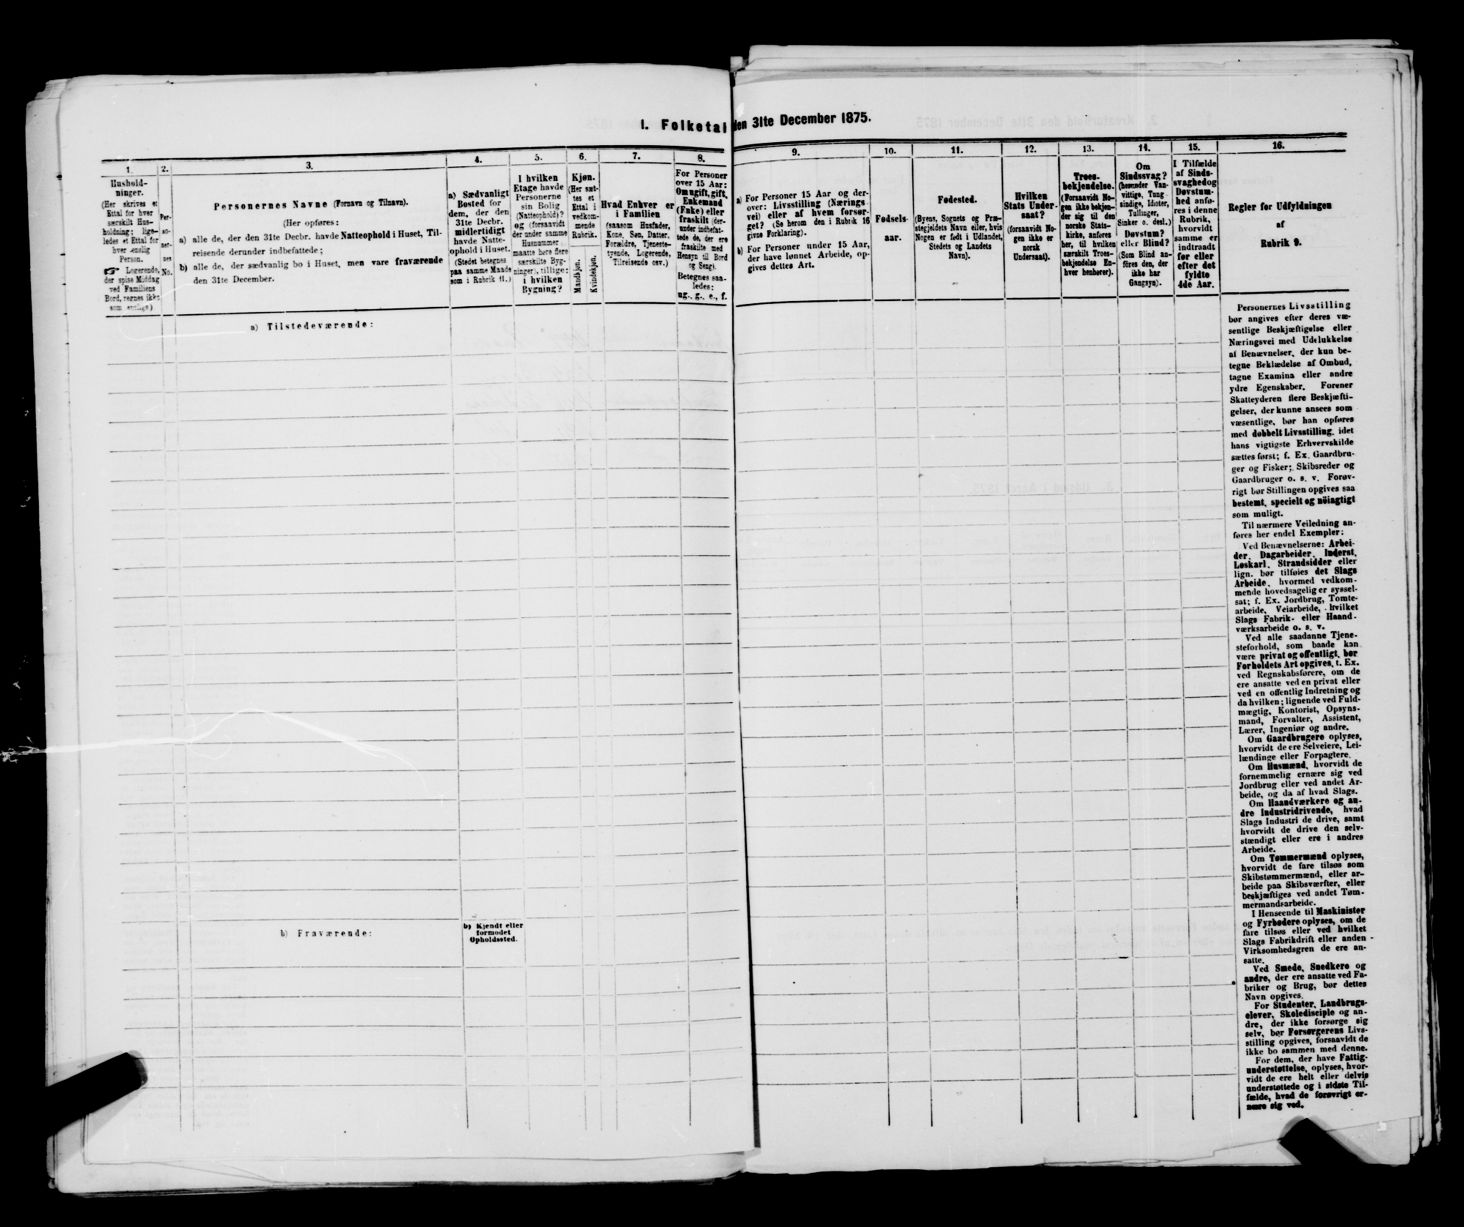 1. Folketal den 31te December 1875.
1.
Hushold-
ninger.
(Her skrives et
Ettal for hver
særskilt Hus-
holdning; lige-
ledes et Ettal for
hver enslig
Person.
☞ Logerende,
der spise Middag
ved Familiens
Bord, regnes ikke
som enslige).
2.
Per-
so-
ner-
nes
No.
3.
Personernes Navne (Fornavn og Tilnavn).
(Her opføres:
a) alle de, der den 31te Decbr. havde Natteophold i Huset, Til-
reisende derunder indbefattede;
b) alle de, der sædvanlig bo i Huset, men vare fraværende
den 31te December.
4.
a) Sædvanligt
Bosted for
dem, der den
31te Decbr.
midlertidigt
havde Natte-
ophold i Huset.
(Stedet betegnes
paa samme Maade
som i Rubrik 11.)
5.
I hvilken
Etage havde
Personerne
sin Bolig
(Natteophold)?
og (forsaavidt
der under samme
Husnummer
maatte høre flere
særskilte Byg-
ninger), tillige:
i hvilken
Bygning?
6.
Kjøn.
(Her sæt-
tes et
Ettal i
vedkom-
mende
Rubrik.
Mandkjøn.
Kvindekjøn.
7.
Hvad Enhver er
i Familien
(saasom Husfader,
Kone, Søn, Datter,
Forældre, Tjeneste-
tyende, Logerende,
Tilreisende osv.)
8.
For Personer
over 15 Aar:
Om ugift, gift,
Enkemand
(Enke) eller
fraskilt (der-
under indbefat-
tede de, der ere
fraskilte med
Hensyn til Bord
og Seng).
Betegnes saa-
ledes:
ug., g., e., f.
9.
a) For Personer 15 Aar og der-
over: Livsstilling (Nærings
vei) eller af hvem forsør-
get? (Se herom den i Rubrik 16
givne Forklaring).
b) For Personer under 15 Aar,
der have lønnet Arbeide, op-
gives dettes Art.
10.
Fødsels-
aar.
11.
Fødested.
(Byens, Sognets og Præ-
stegjeldets Navn eller, hvis
Nogen er født i Udlandet,
Stedets og Landets
Navn).
12.
Hvilken
Stats Under-
saat?
(forsaavidt No-
gen ikke er
norsk
Undersaat).
13.
Troes-
bekjendelse.
(Forsaavidt No-
gen ikke bekjen-
der sig til den
norske Stats-
kirke, anføres
her, til hvilken
særskilt Troes-
bekjendelse En-
hver henhører).
14.
Om
Sindssvag?
(herunder Van-
vittige, Tung-
sindige, Idioter,
Tullinger,
Sinker o. desl.)
Døvstum?
eller Blind?
(Som Blind an-
føres den, der
ikke har
Gangsyn).
15.
I Tilfælde
af Sinds-
svaghed og
Døvstum-
hed anfø-
res i denne
Rubrik,
hvorvidt
samme er
indtraadt
før eller
efter det
fyldte
4de Aar.
16.
Regler for Udfyldningen
af
Rubrik 9.
a) Tilstedeværende:
b) Fraværende:
b) Kjendt eller
formodet
Opholdssted.
Personernes Livsstilling
bør angives efter deres væ-
sentlige Beskjæftigelse eller
Næringsvei med Udelukkelse
af Benævnelser, der kun be-
tegne Beklædelse af Ombud,
tagne Examina eller andre
ydre Egenskaber. Forener
Skatteyderen flere Beskjæfti-
gelser, der kunne ansees som
væsentlige, bør han opføres
med dobbelt Livsstilling, idet
hans vigtigste Erhvervskilde
sættes først; f. Ex. Gaardbru-
ger og Fisker; Skibsreder og
Gaardbruger o. s. v. Forøv-
rigt bør Stillingen opgives saa
bestemt, specielt og nøiagtigt
som muligt.
Til nærmere Veiledning an-
føres her endel Exempler:
Ved Benævnelserne: Arbei-
der, Dagarbeider, Inderst,
Løskarl, Strandsidder eller
lign. bør tilføies det Slags
Arbeide, hvormed vedkom-
mende hovedsagelig er syssel-
sat; f. Ex. Jordbrug, Tomte-
arbeide, Veiarbeide, hvilket
Slags Fabrik- eller Haand-
værksarbeide o. s. v.
Ved alle saadanne Tjene-
steforhold, som baade kan
være privat og offentligt, bør
Forholdets Art opgives, t. Ex.
ved Regnskabsførere, om de
ere ansatte ved en privat eller
ved en offentlig Indretning og
da hvilken; lignende ved Fuld-
mægtig, Kontorist, Opsyns-
mand, Forvalter, Assistent,
Lærer, Ingeniør og andre.
Om Gaardbrugere oplyses,
hvorvidt de ere Selveiere, Lei-
lændinge eller Forpagtere.
Om Husmænd, hvorvidt de
fornemmelig ernære sig ved
Jordbrug eller ved andet Ar-
beide, og da af hvad Slags.
Om Haandværkere og an-
dre Industridrivende, hvad
Slags Industri de drive, samt
hvorvidt de drive den selv-
stændigt eller ere i andres
Arbeide.
Om Tømmermænd oplyses,
hvorvidt de fare tilsøs som
Skibstømmermænd, eller ar-
beide paa Skibsværfter, eller
beskjæftiges ved andet Tøm-
mermandsarbeide.
I Henseende til Maskinister
og Fyrbødere oplyses, om de
fare tilsøs eller ved hvilket
Slags Fabrikdrift eller anden
Virksomhedsgren de ere an-
satte.
Ved Smede, Snedkere og
andre, der ere ansatte ved Fa-
briker og Brug, bør dettes
Navn opgives.
For Studenter, Landbrugs-
elever, Skoledisciple og an-
dre, der ikke forsørge sig
selv, bør Forsørgerens Livs-
stilling opgives, forsaavidt de
ikke bo sammen med denne.
For dem, der have Fattig-
understøttelse, oplyses, hvor-
vidt de ere helt eller delvis
understøttede og i sidste Til-
fælde, hvad de forøvrigt er-
nære sig ved.